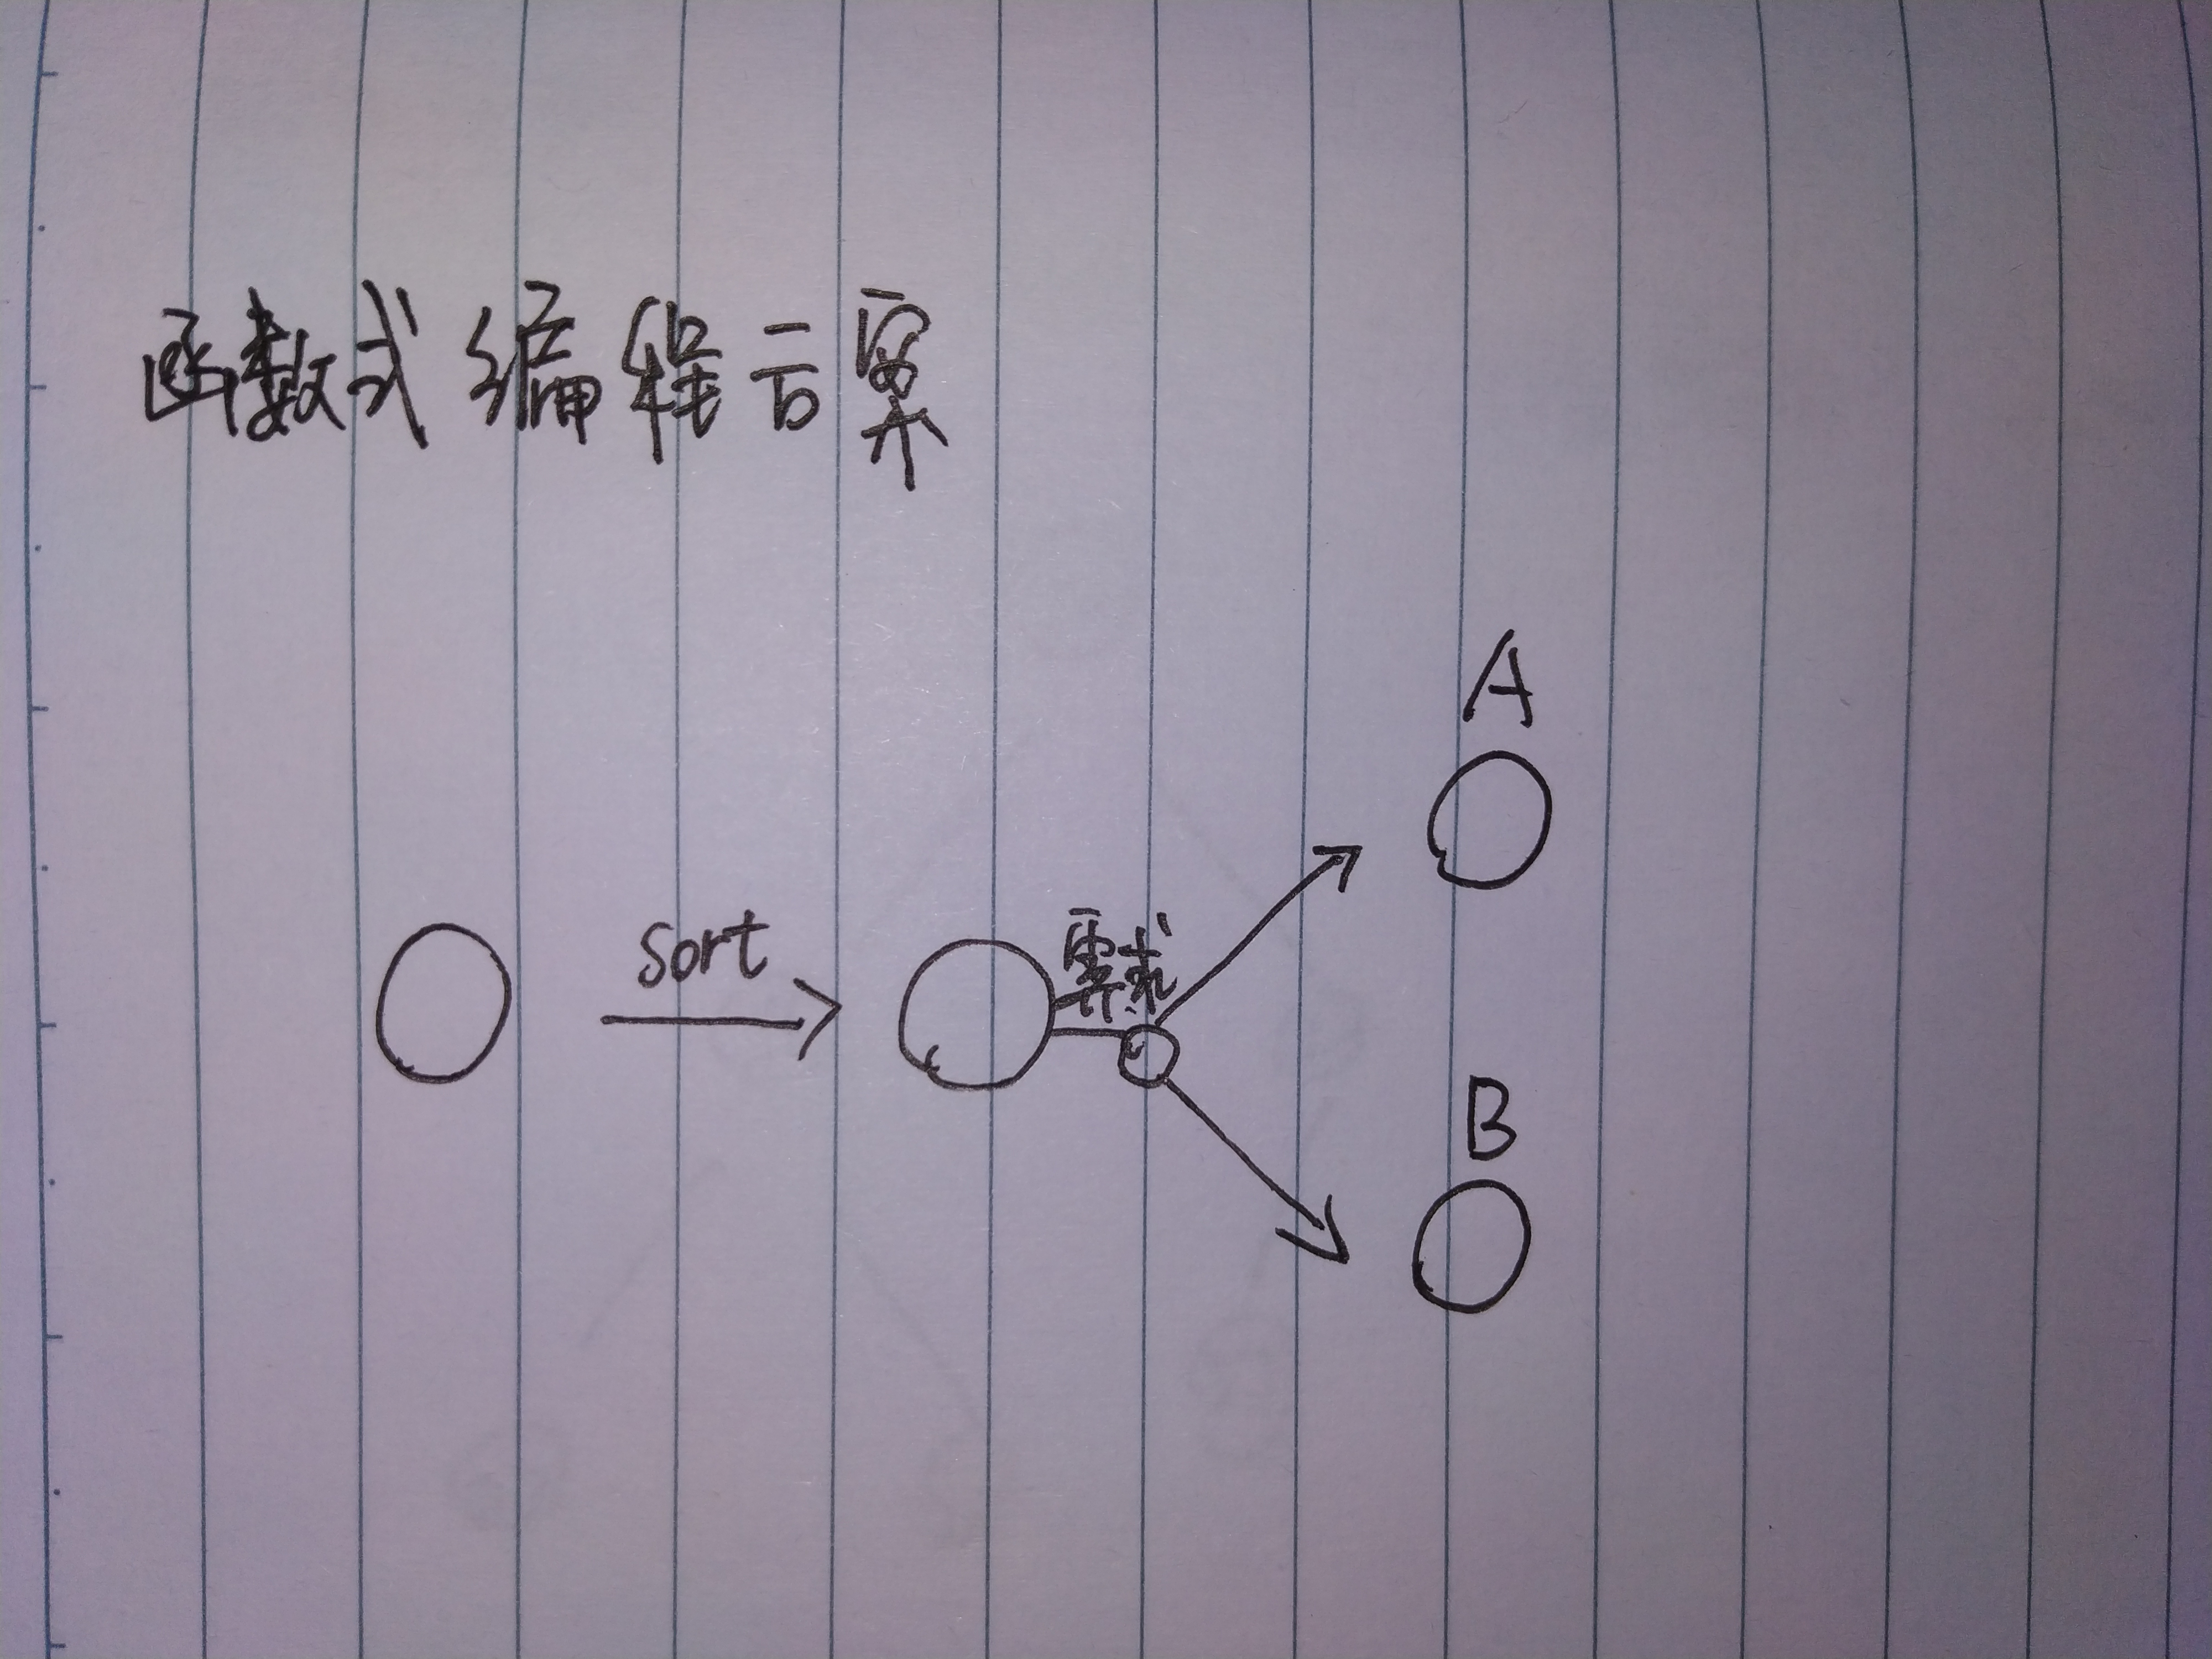 函数式编程方案
A
sort
需求
B